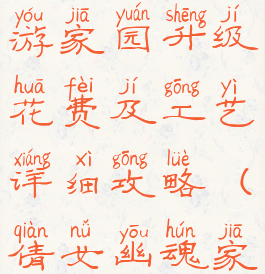 yóu jiā yuán shēng jí
游家园升级
huā fèi jí gōng yì
花费及工艺
xiáng xì gōng lüè
详细攻略（
qiàn nǚ yōu hún jiā
倩女幽魂家